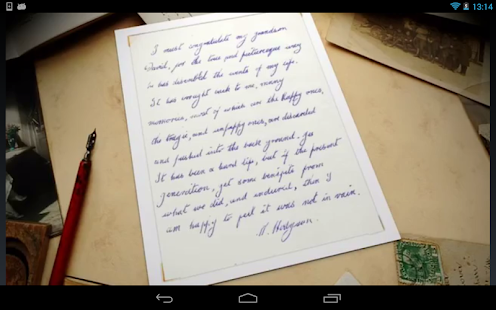 13:14
I must congratulate my grandson
David, for the time and picturesque way
he has assembled the events of my life.
It has brought back to me, many
memories, most of which are the happy ones,
the tragic, and unhappy ones, are discarded
and pushed into the back ground. Yes
It has been a hard life, but if the present
generation, get some insight from
what we did, and endured, then I
am happy to feel it was not in vain.